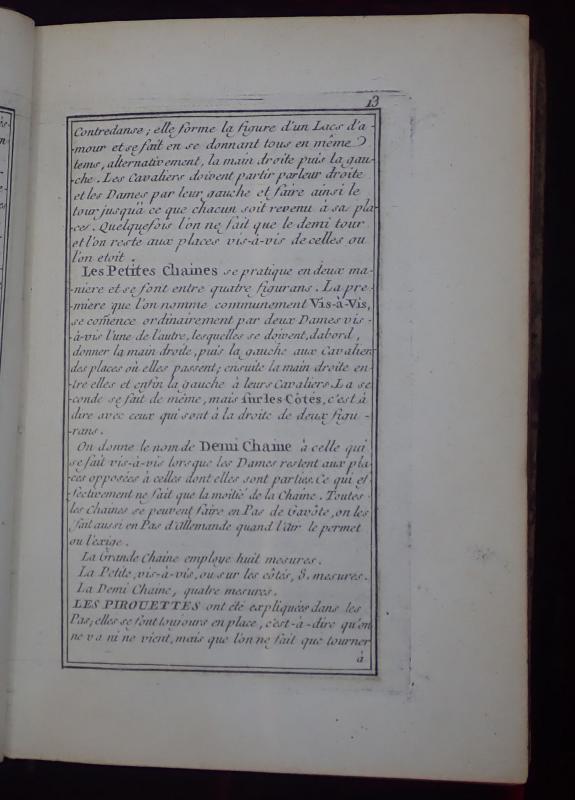 13
Contredanse; elle forme la figure d'un Lacs d'a-
-mour et se fait en se donnant tous en même
tems, alternativement, la main droite puis la gau-
-che. Les Cavaliers doivent partir par leur droite
et les Dames par leur gauche et faire ainsi le
tour jusqu'à ce que chacun soit revenu à sa pla-
-ces. Quelquefois l'on ne fait que le demi tour
et l'on reste aux places vis-à-vis de celles ou
l'on etoit.
Les Petites Chaines se pratique en deux ma-
-niere et se font entre quatre figurans. La pre-
-miere que l'on nomme communement Vis-à-Vis,
se comence ordinairement par deux Dames vis-
-à-vis l'une de l'autre, lesquelles se doivent, dabord,
donner la main droite, puis la gauche aux Cavaliers
des places où elles passent; ensuite la main droite en-
-tre elles et enfin la gauche à leurs Cavaliers. La se-
-conde se fait de même, mais sur les Côtés, c'est à
dire avec ceux qui sont à la droite de deux figu-
-rans.
On donne le nom de Demi Chaine à celle qui
se fait vis-à-vis lorsque les Dames restent aux pla-
-ces opposées à celles dont elles sont parties. Ce qui ef-
-fectivement ne fait que la moitié de la Chaine. Toutes
les Chaines se peuvent faire en Pas de Gavôte, on les
fait aussi en Pas d'Allemande quand l'air le permet
ou l'exige.
La Grande Chaine employe huit mesures.
La Petite, vis-à-vis, ou sur les côtés, 8. mesures.
La Demi Chaine, quatre mesures.
LES PIROUETTES ont été expliquées dans les
Pas; elles se font toujours en place, c'est-à-dire qu'on
ne va ni ne vient, mais que l'on ne fait que tourner
à